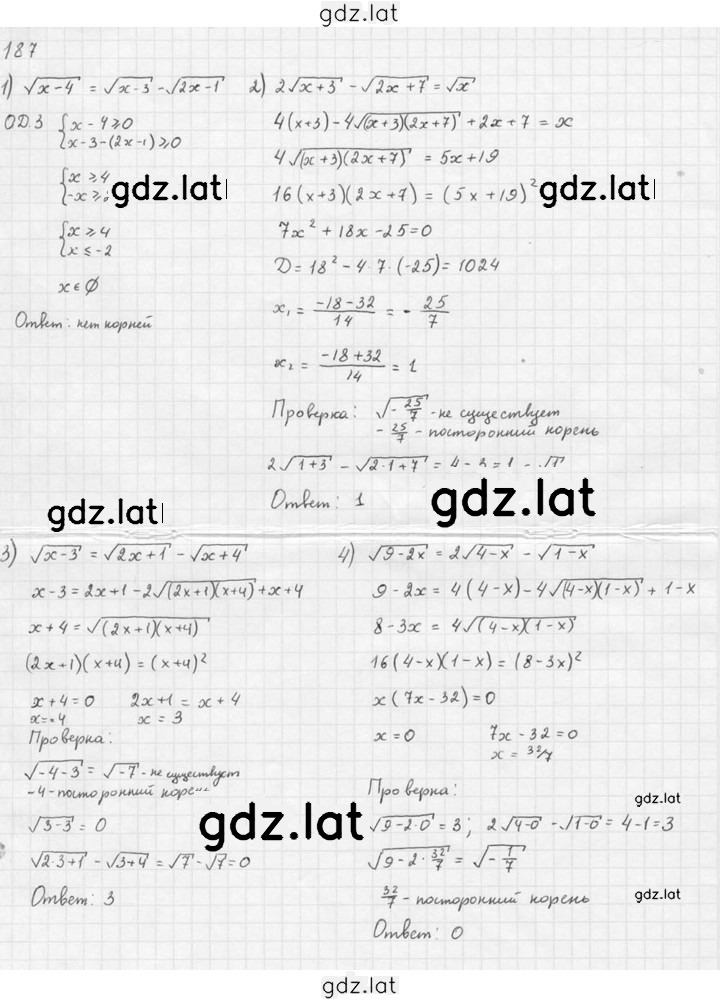 gdz.lat
187
1) √(x-4) = √(x-3) - √(2x-1)
ОДЗ {x-4≥0
{x-3-(2x-1)≥0
{x≥4
gdz.lat
{x≥4
{x≤-2
x∈∅
Ответ: нет корней
2) 2√(x+3) - √(2x+7) = √x
4(x+3) - 4√((x+3)(2x+7)) + 2x+7 = x
4√((x+3)(2x+7)) = 5x+19
16(x+3)(2x+7) = (5x+19)²
gdz.lat
7x² + 18x - 25 = 0
D = 18² - 4·7·(-25) = 1024
x₁ = (-18-32)/14 = -25/7
x₂ = (-18+32)/14 = 1
Проверка: √(-25/7) - не существует
-25/7 - посторонний корень
2√(1+3) - √(2·1+7) = 4-3=1
gdz.lat
Ответ: 1
gdz.lat
3) √(x-3) = √(2x+1) - √(x+4)
x-3 = 2x+1 - 2√((2x+1)(x+4)) + x+4
x+4 = √((2x+1)(x+4))
(2x+1)(x+4) = (x+4)²
x+4=0 2x+1 = x+4
x=-4 x = 3
Проверка:
√(-4-3) = √(-7) - не существует
-4 - посторонний
gdz.lat
√(3-3) = 0
√(2·3+1) - √(3+4) = √7 - √7 = 0
Ответ: 3
4) √(9-2x) = 2√(4-x) - √(1-x)
9-2x = 4(4-x) - 4√((4-x)(1-x)) + 1-x
8-3x = 4√((4-x)(1-x))
16(4-x)(1-x) = (8-3x)²
x(7x-32) = 0
x = 0 7x-32 = 0
x = 32/7
Проверка:
gdz.lat
√(9-2·0) = 3; 2√(4-0) - √(1-0) = 4-1 = 3
√(9-2·32/7) = √(-1/7)
32/7 - посторонний корень
gdz.lat
Ответ: 0
gdz.lat